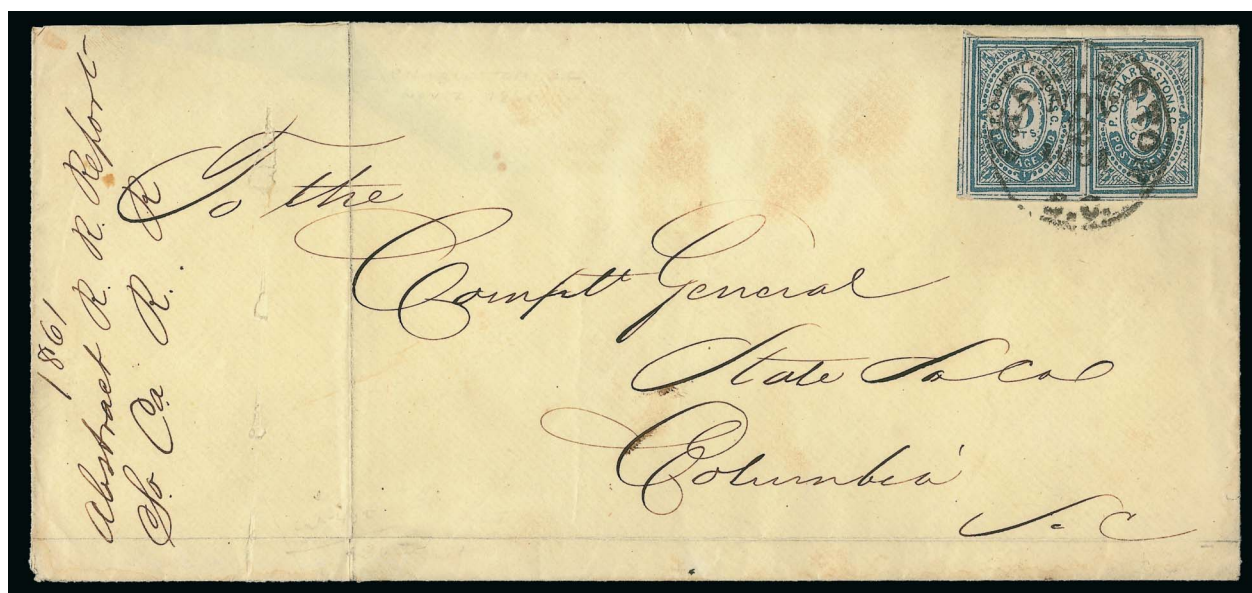 1861
Abstract R. R. Report
So Ca R. R
To the
Compt General
State So Ca
Columbia
S. C
P.O. CHARLESTON S.C.
5
CTS.
POSTAGE PAID
P.O. CHARLESTON S.C.
5
CTS.
POSTAGE PAID
NOV
1861
S.C.